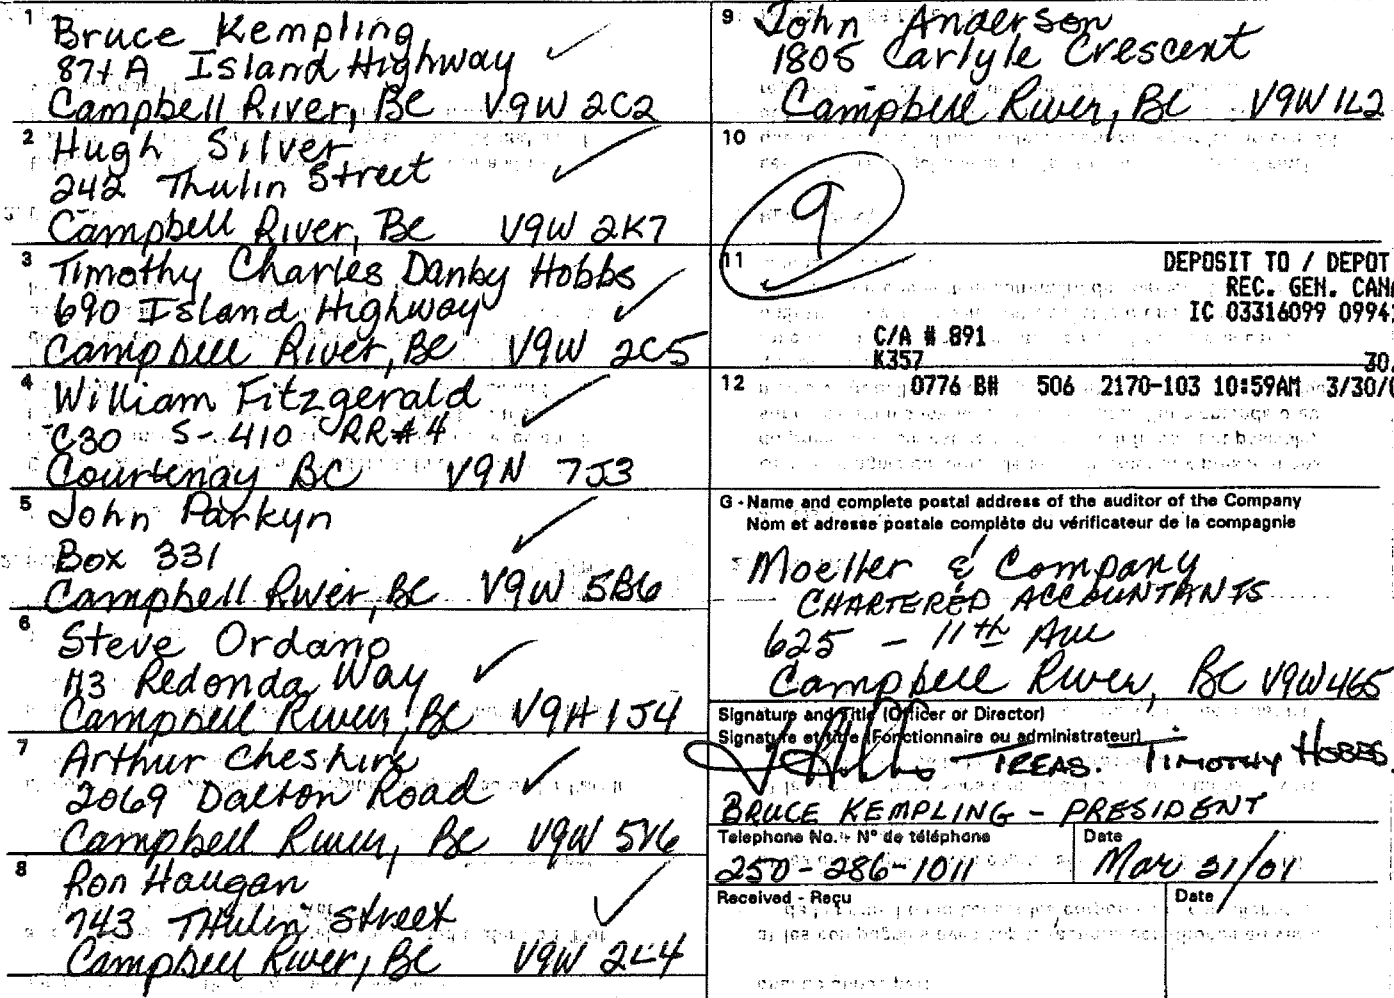 1 Bruce Kempling
871 A Island Highway
Campbell River, BC V9W 2C2
2 Hugh Silver
242 Thulin Street
Campbell River, BC V9W 2K7
3 Timothy Charles Danby Hobbs
690 Island Highway
Campbell River, BC V9W 2C5
4 William Fitzgerald
C30 S-410 RR#4
Courtenay BC V9N 7J3
5 John Parkyn
Box 331
Campbell River, BC V9W 5B6
6 Steve Ordano
113 Redonda Way
Campbell River, BC V9H 1J4
7 Arthur Cheshire
2069 Dalton Road
Campbell River, BC V9W 5V6
8 Ron Haugan
743 Thulin Street
Campbell River, BC V9W 2L4
9 John Anderson
1805 Carlyle Crescent
Campbell River, BC V9W 1L2
10
9
11
DEPOSIT TO / DEPOT
REC. GEN. CANA
IC 03316099 0994
C/A # 891
K357 30.
12 0776 B# 506 2170-103 10:59AM 3/30/0
G - Name and complete postal address of the auditor of the Company
Nom et adresse postale complète du vérificateur de la compagnie
Moeller & Company
CHARTERED ACCOUNTANTS
625 - 11th Ave
Campbell River, BC V9W 4G5
Signature and Title (Officer or Director)
Signature et titre (Fonctionnaire ou administrateur)
TREAS. TIMOTHY HOBBS.
BRUCE KEMPLING - PRESIDENT
Telephone No. - N° de téléphone Date
250-286-1011 Mar 21/01
Received - Reçu Date